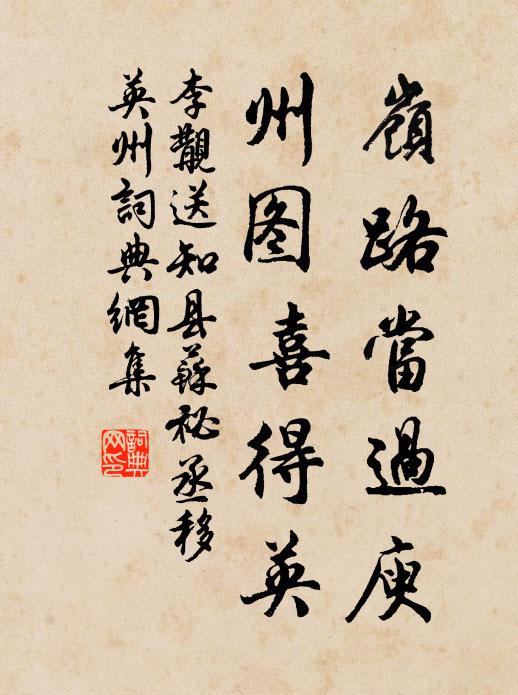 嶺路當過庾
州图喜得英
李觀送知县蘇祕丞移
英州詞典網集
詞典网印